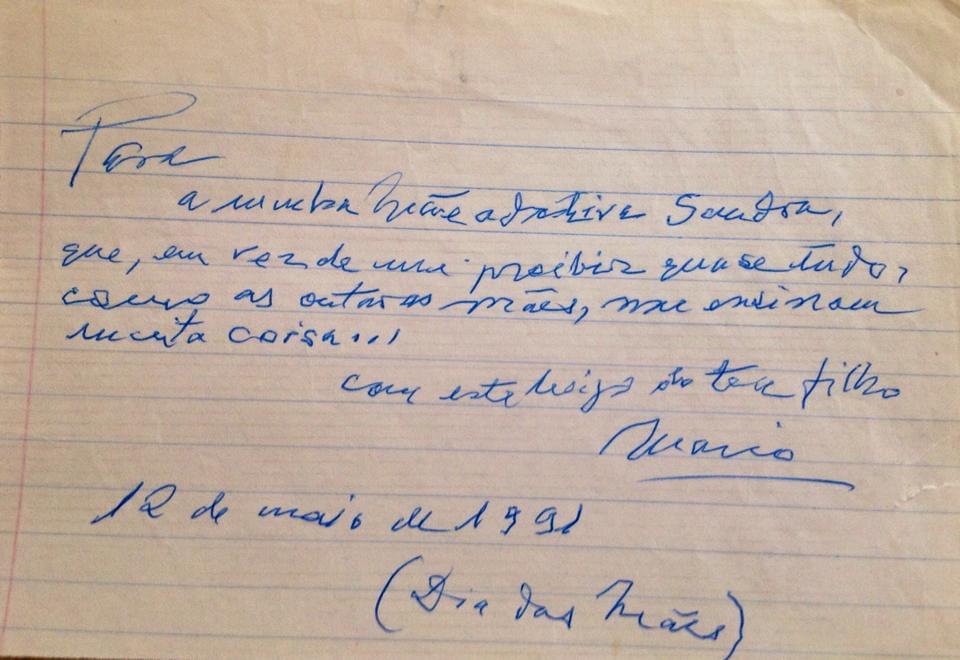 Para
a minha Mãe adotiva Sandra,
que, em vez de me proibir quase tudo,
como as outras mães, me ensinou
muita coisa...
com este beijo do teu filho
Mario
12 de maio de 1991
(Dia das Mães)